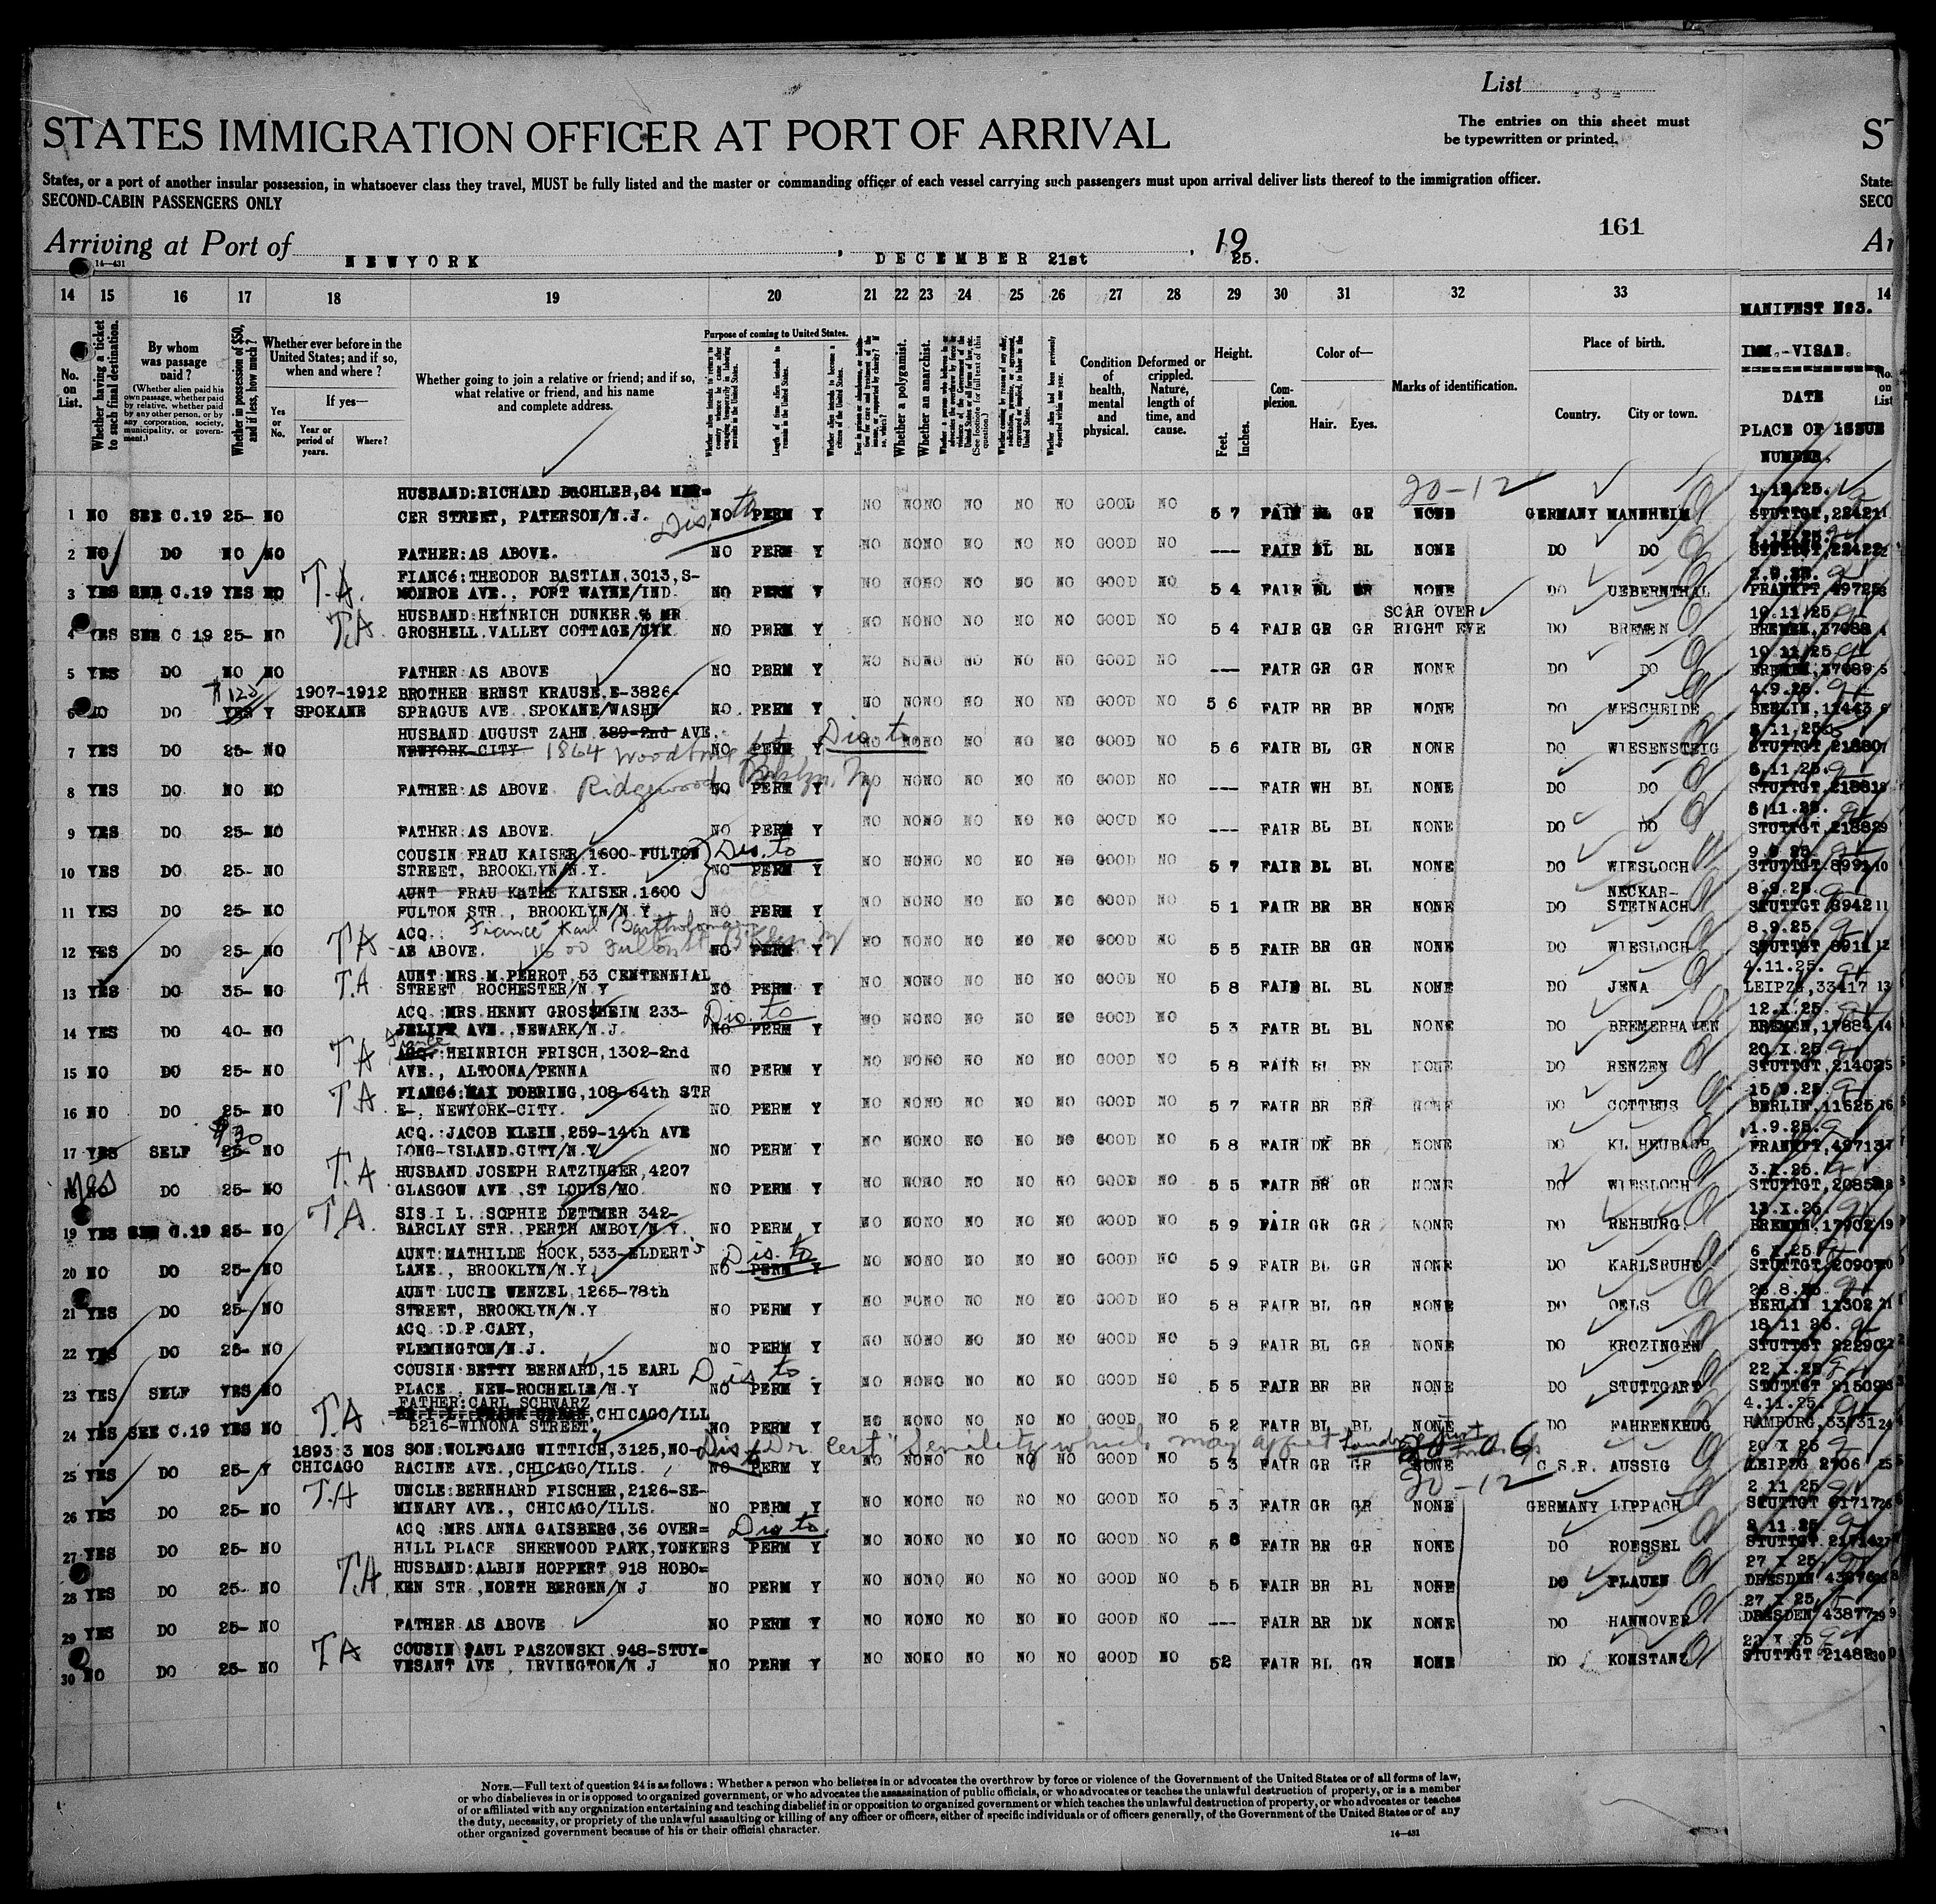 List - 3 -
STATES IMMIGRATION OFFICER AT PORT OF ARRIVAL
The entries on this sheet must
be typewritten or printed.
States, or a port of another insular possession, in whatsoever class they travel, MUST be fully listed and the master or commanding officer of each vessel carrying such passengers must upon arrival deliver lists thereof to the immigration officer.
SECOND-CABIN PASSENGERS ONLY
161
Arriving at Port of NEWYORK, DECEMBER 21st, 1925.
14—431
14 15 16 17 18 19 20 21 22 23 24 25 26 27 28 29 30 31 32 33
MANIFEST No3.
IMM.-VISAE.
DATE
PLACE OF ISSUE
NUMBER.
No. on List.
Whether having a ticket to such final destination.
By whom was passage paid?
(Whether alien paid his own passage, whether paid by relative, whether paid by any other person, or by any corporation, society, municipality, or government.)
Whether in possession of $50, and if less, how much?
Whether ever before in the United States; and if so, when and where?
Yes or No.
If yes—
Year or period of years.
Where?
Whether going to join a relative or friend; and if so, what relative or friend, and his name and complete address.
Purpose of coming to United States.
Whether a polygamist.
Whether an anarchist.
Condition of health, mental and physical.
Deformed or crippled. Nature, length of time, and cause.
Height.
Feet. Inches.
Complexion.
Color of—
Hair. Eyes.
Marks of identification.
Place of birth.
Country. City or town.
20-12
HUSBAND:RICHARD BUCHLER,84 MER=
1 NO SEE C.19 25- NO CER STREET, PATERSON/N.J. NO PERM Y NO NO NO NO NO NO GOOD NO 5 7 FAIR BL GR NONE GERMANY MANNHEIM STUTTGT,22421
Dis. to
2 NO DO NO NO FATHER:AS ABOVE. NO PERM Y NO NO NO NO NO NO GOOD NO --- FAIR BL BL NONE DO DO STUTTGT,22422
T.A. FIANCé:THEODOR BASTIAN,3013,S- 2.9.25.
3 YES SEE C.19 YES NO MONROE AVE., FORT WAYNE/IND. NO PERM Y NO NO NO NO NO NO GOOD NO 5 4 FAIR BL BR NONE DO UEBERNTHAL FRANKFT,49725
T.A HUSBAND:HEINRICH DUNKER % MR SCAR OVER 19.11.25.
4 YES SEE C 19 25- NO GROSHELL.VALLEY COTTAGE/NYK NO PERM Y NO NO NO NO NO NO GOOD NO 5 4 FAIR GR GR RIGHT EYE DO BREMEN BREMEN,37088
19 11 25
5 YES DO NO NO FATHER:AS ABOVE NO PERM Y NO NO NO NO NO NO GOOD NO --- FAIR GR GR NONE DO DO BREMEN,37089
1907-1912 BROTHER ERNST KRAUSE,E-3826- 4.9.25.
6 NO DO YES Y SPOKANE SPRAGUE AVE. SPOKANE/WASHN NO PERM Y NO NO NO NO NO NO GOOD NO 5 6 FAIR BR BR NONE DO MESCHEIDE BERLIN,11443
HUSBAND AUGUST ZAHN 389-2nd AVE. Dis to
7 YES DO 25- NO NEWYORK-CITY 1864 Woodbine St NO PERM Y NO NO NO NO NO NO GOOD NO 5 6 FAIR BL GR NONE DO WIESENSTEIG STUTTGT,21880
8 YES DO NO NO FATHER:AS ABOVE Ridgewood Bklyn. Ny NO PERM Y NO NO NO NO NO NO GOOD NO --- FAIR WH BL NONE DO DO STUTTGT.21881
9 YES DO 25- NO FATHER:AS ABOVE. NO PERM Y NO NO NO NO NO NO GOOD NO --- FAIR BL BL NONE DO DO STUTTGT,21882
COUSIN FRAU KAISER,1600-FULTON Dis. to 9.9.25.
10 YES DO 25- NO STREET, BROOKLYN/N.Y. NO PERM Y NO NO NO NO NO NO GOOD NO 5 7 FAIR BL BL NONE DO WIESLOCH STUTTGT.8991
AUNT FRAU KATHE KAISER.1600 NECKAR- 8.9.25.
11 YES DO 25- NO FULTON STR., BROOKLYN/N.Y NO PERM Y NO NO NO NO NO NO GOOD NO 5 1 FAIR BR BR NONE DO STEINACH STUTTGT 8942
ACQ.: Fiance Karl Bartholomä 8.9.25.
12 YES DO 25- NO T A AS ABOVE. 1600 Fulton St. Bklyn. Ny NO PERM Y NO NO NO NO NO NO GOOD NO 5 5 FAIR BR GR NONE DO WIESLOCH STUTTGT 8911
T.A AUNT MRS.M.PERROT,53 CENTENNIAL 4.11.25.
13 YES DO 35- NO STREET ROCHESTER/N.Y NO PERM Y NO NO NO NO NO NO GOOD NO 5 8 FAIR BL BL NONE DO JENA LEIPZG,33417
ACQ.:MRS.HENNY GROSSHEIM 233- Dis. to 12.X.25.
14 YES DO 40- NO JELIFF AVE.,NEWARK/N.J. NO PERM Y NO NO NO NO NO NO GOOD NO 5 3 FAIR BL BL NONE DO BREMERHAVEN BREMEN,17884
T A Fiance ACQ.:HEINRICH FRISCH,1302-2nd 20 X 25
15 NO DO 25- NO AVE., ALTOONA/PENNA NO PERM Y NO NO NO NO NO NO GOOD NO 5 8 FAIR BL BR NONE DO RENZEN STUTTGT,21402
T A FIANCé:MAX DOBRING,108-64th STR 15.9.25.
16 NO DO 25- NO E-, NEWYORK-CITY. NO PERM Y NO NO NO NO NO NO GOOD NO 5 7 FAIR BR BR NONE DO COTTBUS BERLIN,11625
ACQ.:JACOB KLEIN,259-14th AVE 1.9.25.
17 YES SELF 25- NO LONG-ISLAND.CITY/N.Y NO PERM Y NO NO NO NO NO NO GOOD NO 5 8 FAIR DK BR NONE DO KL HEUBACH FRANKFT,49713
T.A HUSBAND JOSEPH RATZINGER,4207 3.X.25.
18 NO yes DO 25- NO GLASGOW AVE.,ST LOUIS/MO. NO PERM Y NO NO NO NO NO NO GOOD NO 5 5 FAIR BR GR NONE DO WIESLOCH STUTTGT,2085
T A. SIS.I L.:SOPHIE DETTMER 342- 13.X.25.
19 YES SEE C.19 25- NO BARCLAY STR..PERTH AMBOY/N.Y. NO PERM Y NO NO NO NO NO NO GOOD NO 5 9 FAIR GR GR NONE DO REHBURG. BREMEN.17902
AUNT:MATHILDE HOCK,533-ELDERT Dis. to 6 X.25.
20 NO DO 25- NO LANE., BROOKLYN/N.Y. NO PERM Y NO NO NO NO NO NO GOOD NO 5 9 FAIR BL GR NONE DO KARLSRUHE STUTTGT,20907
AUNT LUCIE WENZEL 1265-78th
21 YES DO 25- NO STREET, BROOKLYN/N.Y NO PERM Y NO NO NO NO NO NO GOOD NO 5 8 FAIR BL GR NONE DO OELS BERLIN 11302
ACQ.:D.P.CARY, 18 11 25.
22 YES DO 25- NO FLEMINGTON/N.J. NO PERM Y NO NO NO NO NO NO GOOD NO 5 9 FAIR BL GR NONE DO KROZINGEN STUTTGT 22290
COUSIN BETTY BERNARD,15 EARL Dis to 22 X.25
23 YES SELF YES NO PLACE., NEW-ROCHELLE/N.Y NO PERM Y NO NO NO NO NO NO GOOD NO 5 5 FAIR BR BR NONE DO STUTTGART STUTTGT 21509
FATHER:CARL SCHWARZ 4.11.25.
T.A ,CHICAGO/ILL
24 YES SEE C.19 YES NO 5216-WINONA STREET. NO PERM Y NO NO NO NO NO NO GOOD NO 5 2 FAIR BL BL NONE DO FAHRENKRUG HAMBURG,53731
1893:3 MOS SON:WOLFGANG WITTICH,3125,NO- Dis. to Dr cert "Senility which may affect 20 X 25
25 YES DO 25- Y CHICAGO RACINE AVE.,CHICAGO/ILLS. NO PERM Y NO NO NO NO NO NO GOOD NO 5 3 FAIR GR GR NONE C.S.R. AUSSIG LEIPZG 2706
T.A UNCLE:BERNHARD FISCHER,2126-SE- 20-12 2 11 25
26 YES DO 25- NO MINARY AVE., CHICAGO/ILLS. NO PERM Y NO NO NO NO NO NO GOOD NO 5 3 FAIR GR GR NONE GERMANY LIPPACH STUTTGT 21717
ACQ :MRS.ANNA GAISBERG,36 OVER= Dis to
27 YES DO 25- NO HILL PLACE SHERWOOD PARK,YONKERS PERM Y NO NO NO NO NO NO GOOD NO 5 8 FAIR BR GR NONE DO ROESSEL STUTTGT
T.A HUSBAND:ALBIN HOPPERT 918 HOBO= 27 X 25
28 YES DO 25- NO KEN STR.,NORTH BERGEN/N J NO PERM Y NO NO NO NO NO NO GOOD NO 5 5 FAIR BR BL NONE DO PLAUEN DRESDEN 43876
27 X 25
29 YES DO 25- NO FATHER AS ABOVE NO PERM Y NO NO NO NO NO NO GOOD NO --- FAIR BR DK NONE DO HANNOVER DRESDEN 43877
T A COUSIN PAUL PASZOWSKI 948-STUY= 22 X 25
30 NO DO 25- NO VESANT AVE , IRVINGTON/N J NO PERM Y NO NO NO NO NO NO GOOD NO 52 FAIR BL GR NONE DO KONSTANZ STUTTGT 21482
NOTE.—Full text of question 24 is as follows: Whether a person who believes in or advocates the overthrow by force or violence of the Government of the United States or of all forms of law,
or who disbelieves in or is opposed to organized government, or who advocates the assassination of public officials, or who advocates or teaches the unlawful destruction of property, or is a member
of or affiliated with any organization entertaining and teaching disbelief in or opposition to organized government or which teaches the unlawful destruction of property, or who advocates or teaches
the duty, necessity, or propriety of the unlawful assaulting or killing of any officer or officers, either of specific individuals or of officers generally, of the Government of the United States or of any
other organized government because of his or their official character.
14—431